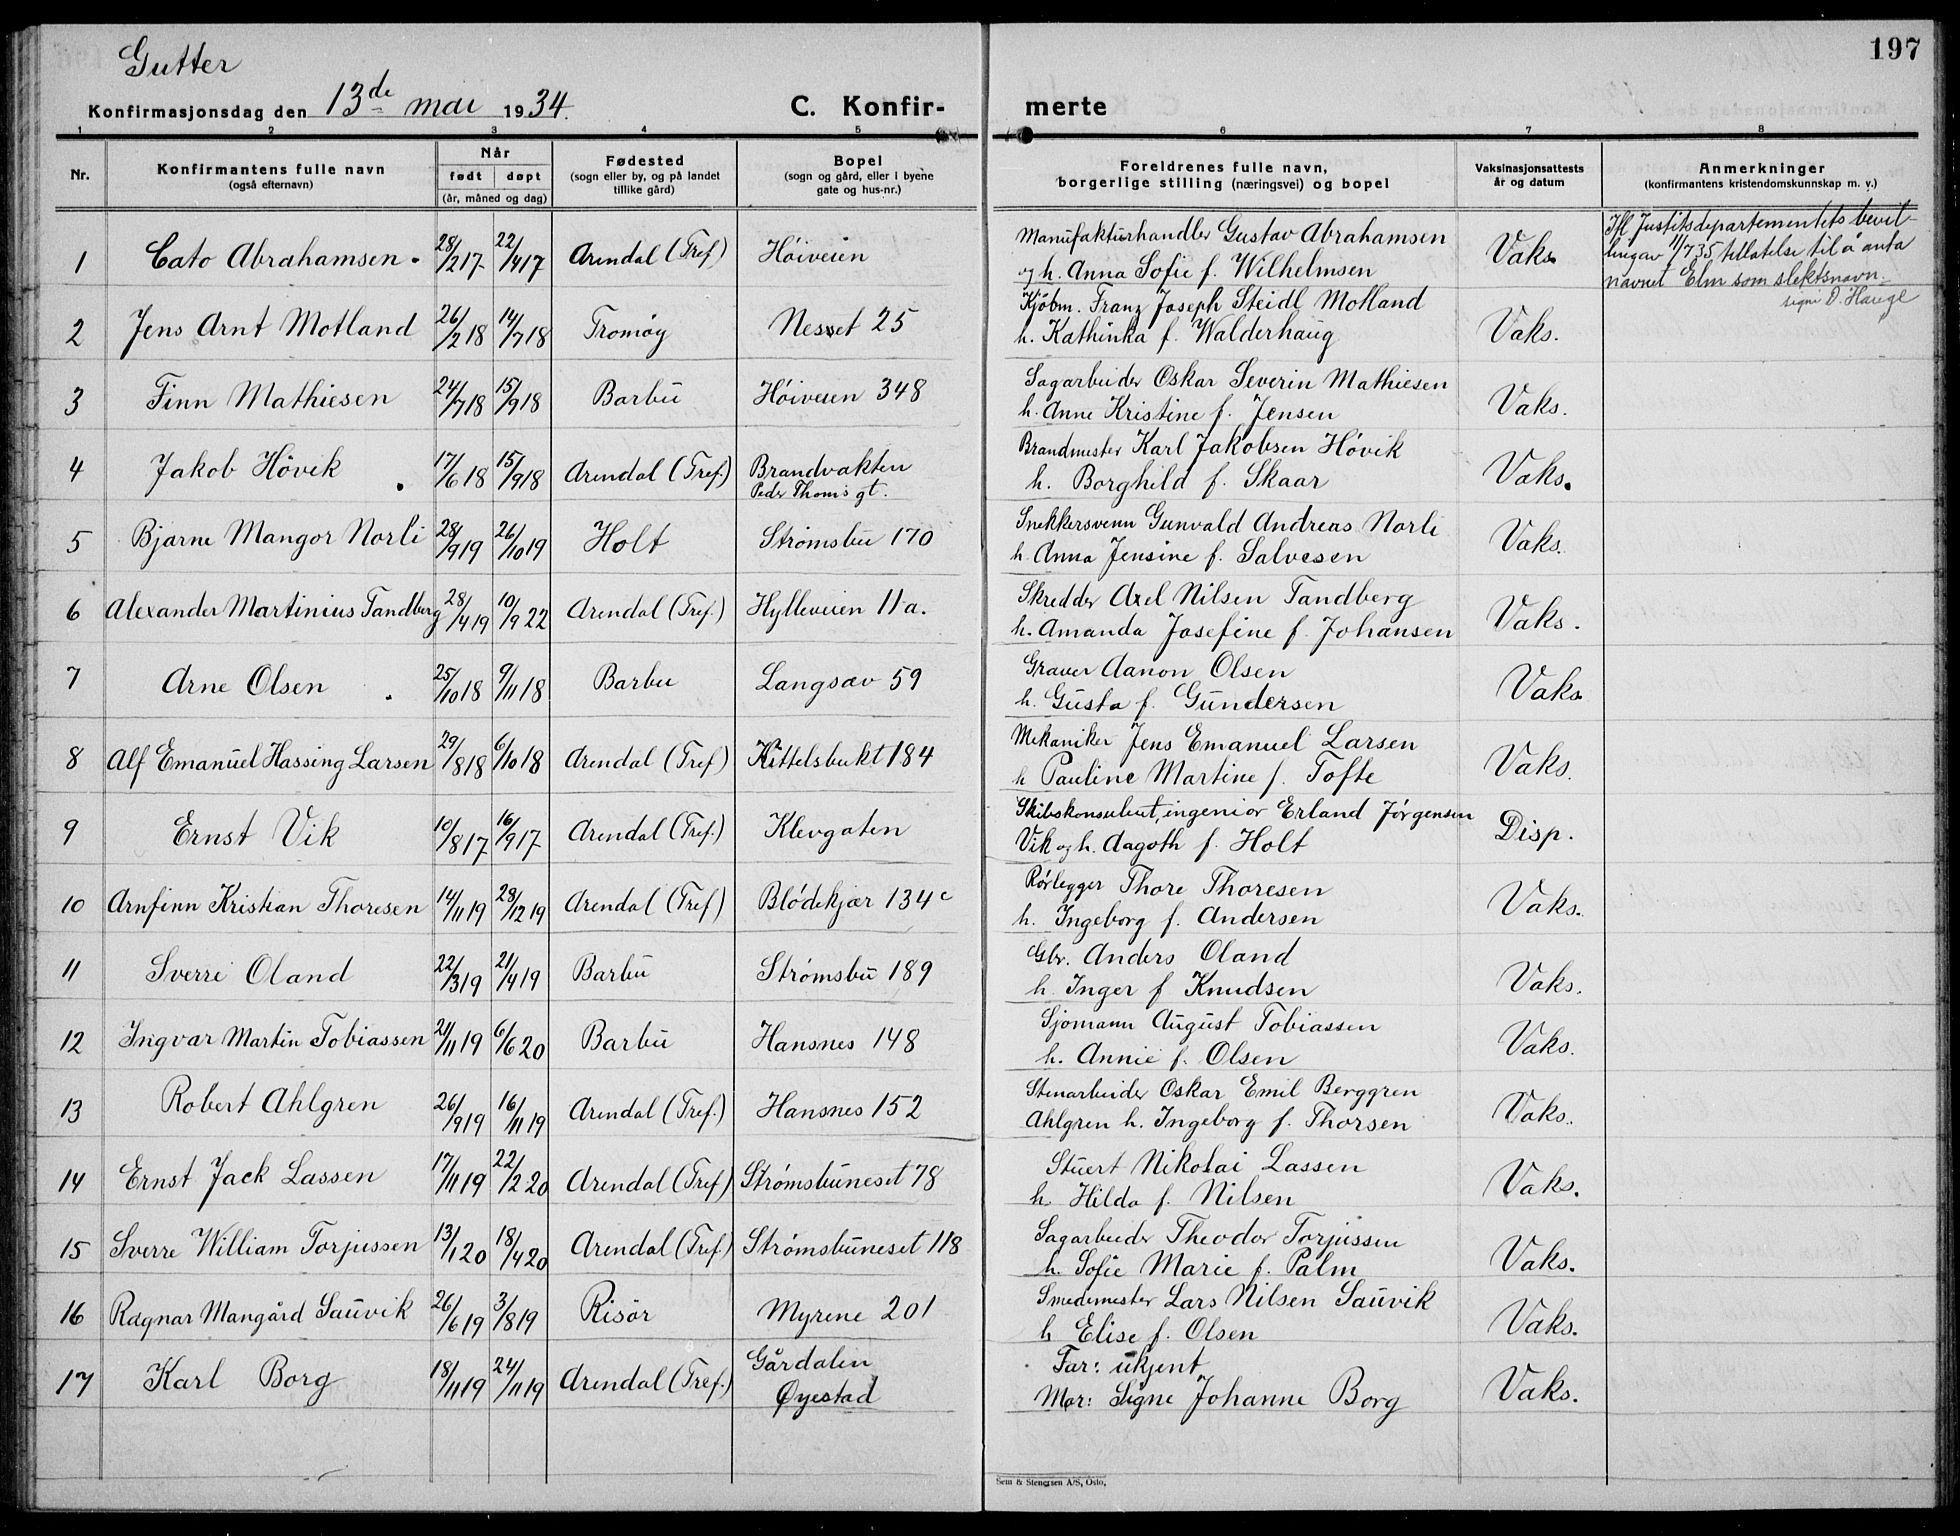 197
Gutter
Konfirmasjonsdag den 13de mai 1934.
C. Konfirmerte
1 2 3 4 5 6 7 8
Nr. Konfirmantens fulle navn (også efternavn) Når født døpt (år, måned og dag) Fødested (sogn eller by, og på landet tillike gård) Bopel (sogn og gård, eller i byene gate og hus-nr.) Foreldrenes fulle navn, borgerlige stilling (næringsvei) og bopel Vaksinasjonsattests år og datum Anmerkninger (konfirmantens kristendomskunnskap m. v.)
1 Cato Abrahamsen. 28/2 17 22/4 17 Arendal (Tref) Høiveien Manufakturhandler Gustav Abrahamsen og h. Anna Sofie f. Wilhelmsen Vaks. Ifl Justitsdepartementets bevillingav 11/7 35, tillatelse til å anta navnet Elm som slektsnavn. sign D. Hauge
2 Jens Arnt Motland 26/2 18 14/7 18 Tromøy Nesset 25 Kjøbm. Franz Joseph Steidl Motland h. Kathinka f. Walderhaug Vaks.
3 Finn Mathiesen 24/7 18 15/9 18 Barbu Høiveien 348 Sagarbeider Oskar Severin Mathiesen h. Anne Kristine f. Jensen Vaks.
4 Jakob Høvik 17/6 18 15/9 18 Arendal (Tref.) Brandvakten Peder Thoms gt. Brandmester Karl Jakobsen Høvik h. Borghild f. Skaar Vaks.
5 Bjarne Mangor Norli 28/9 19 26/10 19 Holt Strømsbu 170 Snekkersvenn Gunvald Andreas Norli h. Anna Jensine f. Salvesen Vaks.
6 Alexander Martinius Tandberg 28/4 19 10/9 22 Arendal (Tref.) Hylleveien 11a. Skredder Axel Nilsen Tandberg h. Amanda Josefine f. Johansen Vaks.
7 Arne Olsen 25/10 18 9/11 18 Barbu Langsæv 59 Graver Aanon Olsen h. Gusta f. Gundersen Vaks.
8 Alf Emanuel Hassing Larsen 29/8 18 6/10 18 Arendal (Tref) Kittelsbukt 184 Mekaniker Jens Emanuel Larsen h Pauline Martine f. Tofte Vaks.
9 Ernst Vik 10/8 17 16/9 17 Arendal (Tref.) Klevgaten Skibskonsulent, ingeniør Erland Jørgensen Vik og h. Aagoth f. Holt Disp.
10 Arnfinn Kristian Thoresen 14/11 19 28/12 19 Arendal (Tref) Blødekjær 134c Rørlegger Thore Thoresen h. Ingeborg f. Andersen Vaks.
11 Sverre Oland 22/3 19 21/4 19 Barbu Strømsbu 189 Gbr. Anders Oland h. Inger f Knudsen Vaks.
12 Ingvar Martin Tobiassen 21/11 19 6/6 20 Barbu Hansnes 148 Sjømann August Tobiassen h. Annie f. Olsen Vaks.
13 Robert Ahlgren 26/9 19 16/11 19 Arendal (Tref.) Hansnes 152 Stenarbeider Oskar Emil Berggren Ahlgren h. Ingeborg f. Thorsen Vaks.
14 Ernst Jack Lassen 17/11 19 22/2 20 Arendal (Tref) Strømsbuneset 78 Stuert Nikolai Lassen h. Hilda f. Nilsen Vaks.
15 Sverre William Torjussen 13/1 20 18/4 20 Arendal (Tref.) Strømsbuneset 118 Sagarbeider Theodor Torjussen h. Sofie Marie f. Palm Vaks.
16 Ragnar Mangård Sauvik 26/6 19 3/8 19 Risør Myrene 201 Smedemester Lars Nilsen Sauvik h Elise f. Olsen Vaks.
17 Karl Borg 18/11 19 24/11 19 Arendal (Tref.) Gårdalen Øyestad Far: ukjent, Mor: Signe Johanne Borg Vaks.
Sem & Stenersen A/S, Oslo.